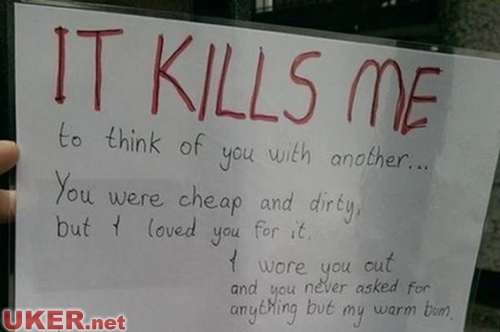 IT KILLS ME
to think of you with another...
You were cheap and dirty,
but I loved you for it.
I wore you out
and you never asked for
anything but my warm bum.
UKER.net